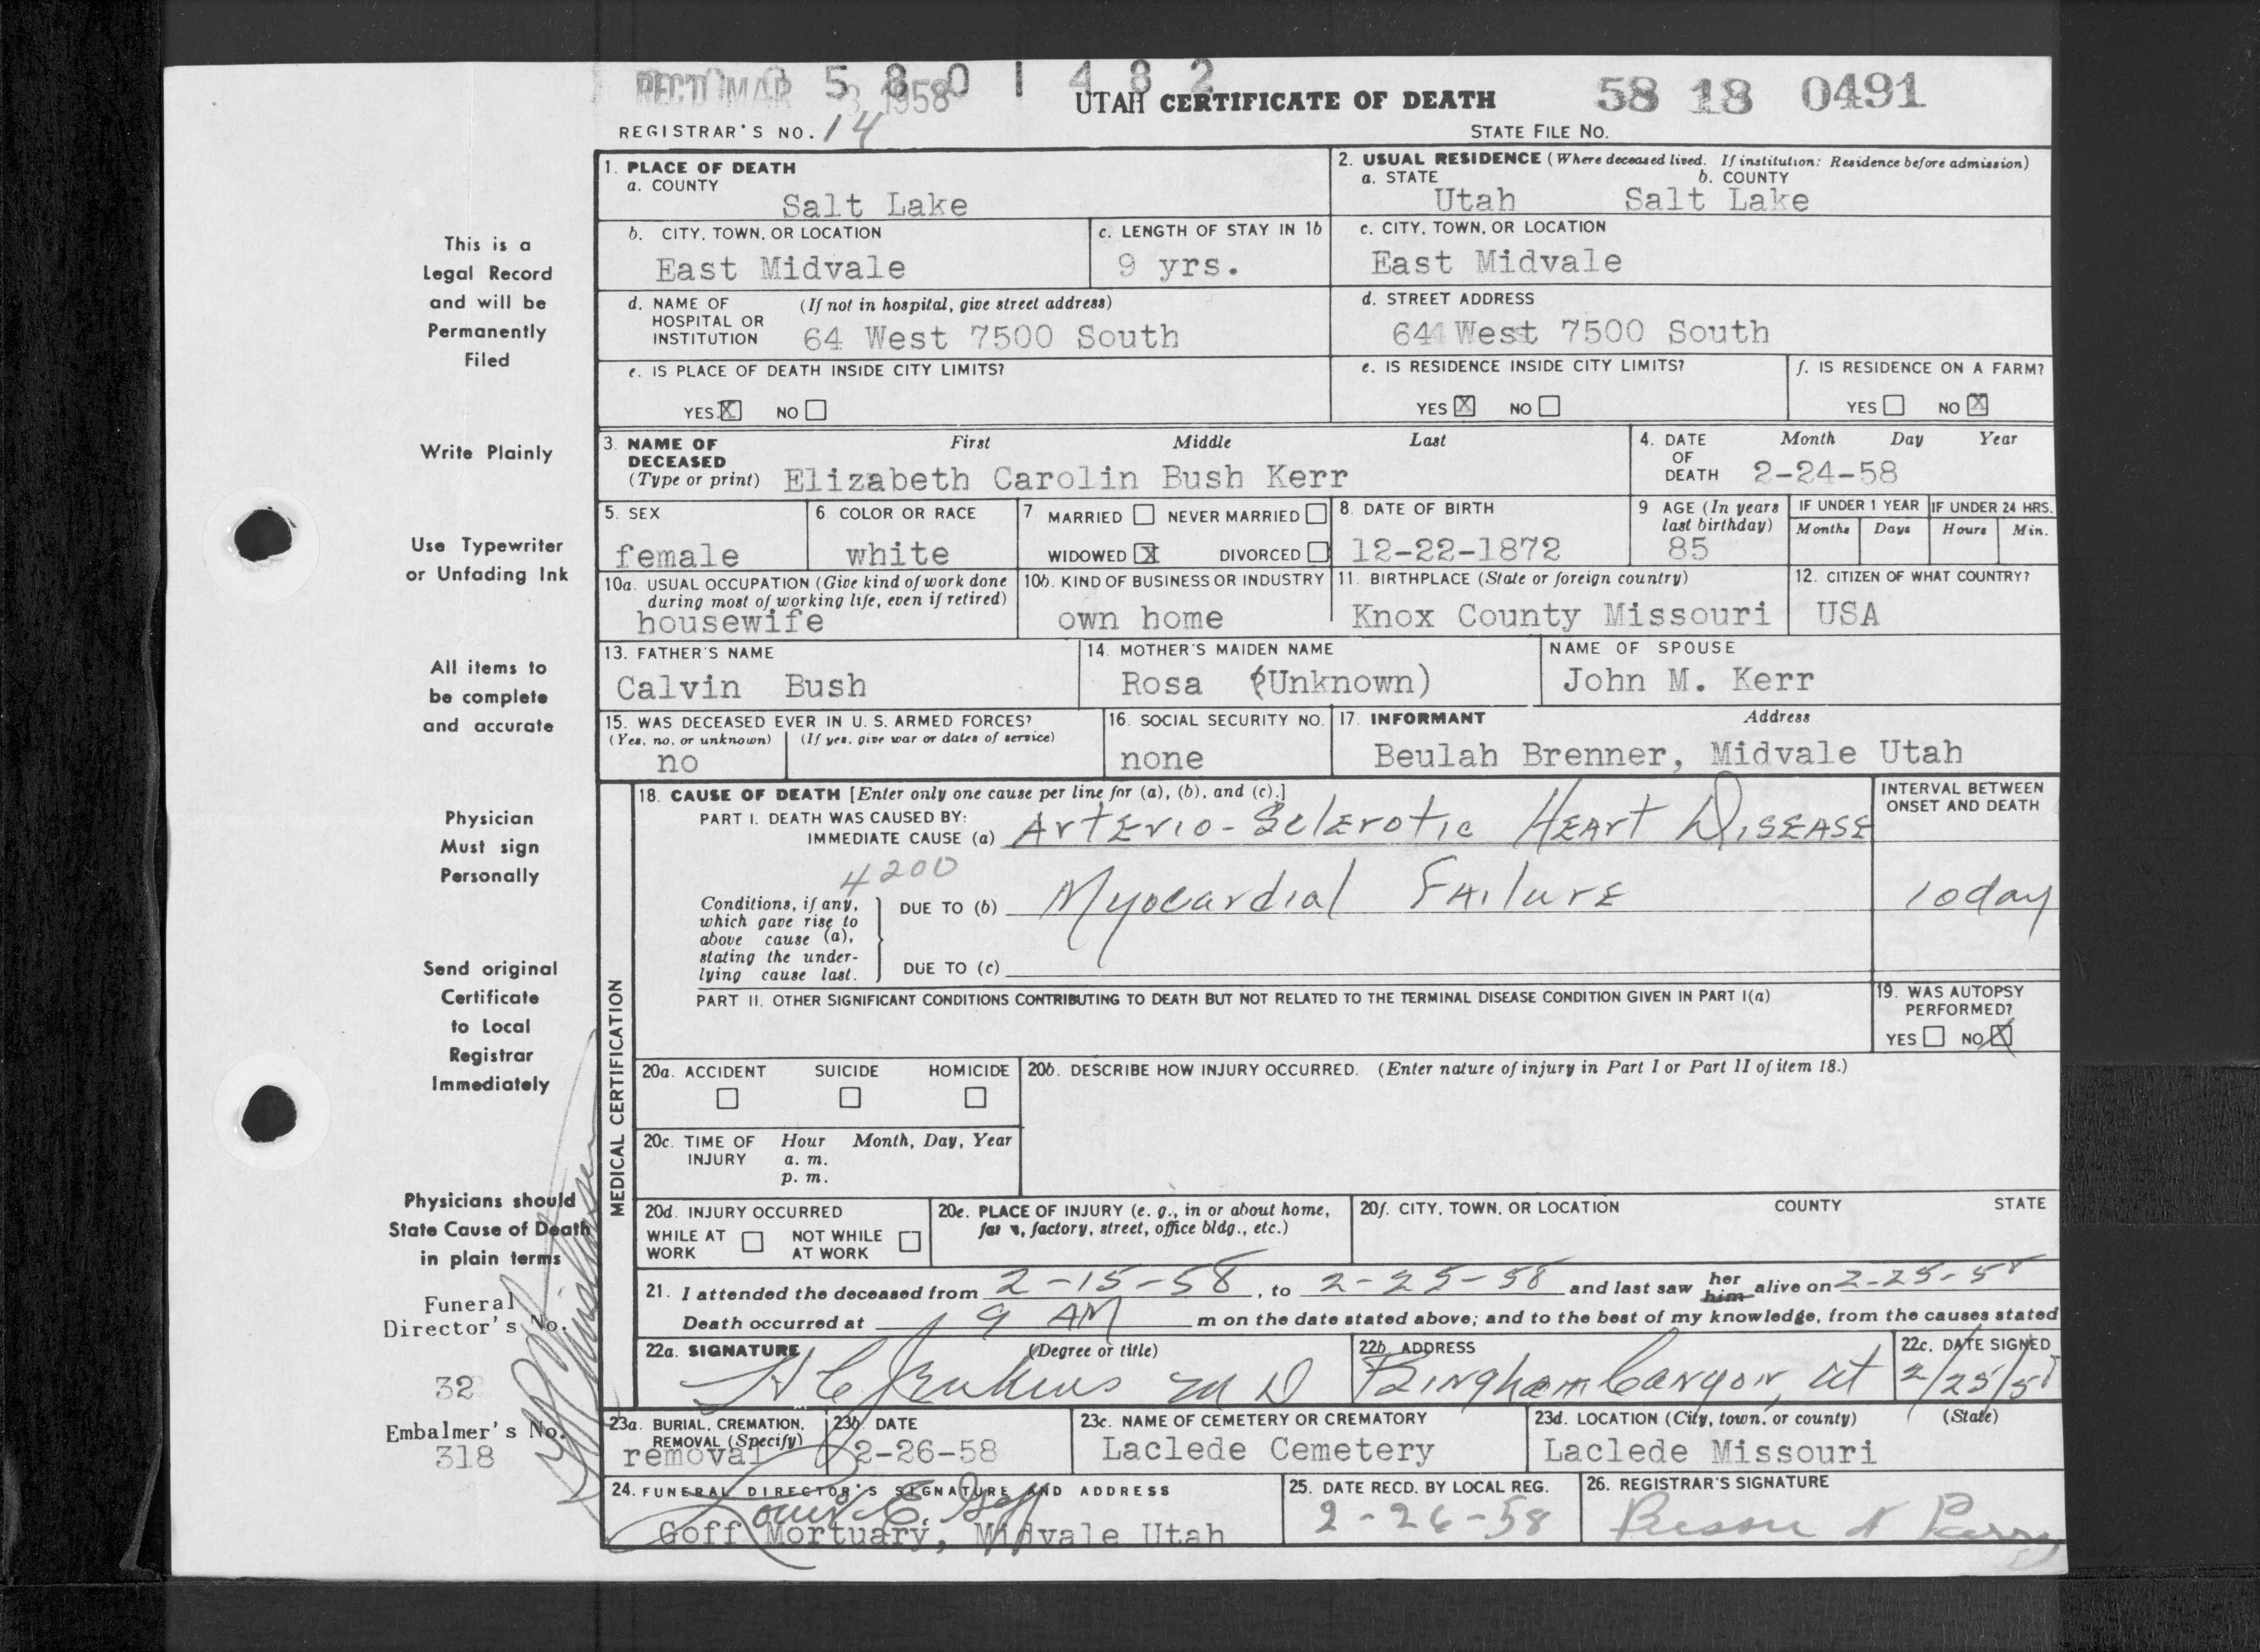 REC'D MAR 3 1958
5 8 0 1 4 8 2
UTAH CERTIFICATE OF DEATH
58 18 0491
REGISTRAR'S NO. 14
STATE FILE No.
This is a
Legal Record
and will be
Permanently
Filed
Write Plainly
Use Typewriter
or Unfading Ink
All items to
be complete
and accurate
Physician
Must sign
Personally
Send original
Certificate
to Local
Registrar
Immediately
Physicians should
State Cause of Death
in plain terms
Funeral
Director's No.
32
Embalmer's No.
318
1. PLACE OF DEATH
a. COUNTY
Salt Lake
2. USUAL RESIDENCE (Where deceased lived. If institution: Residence before admission)
a. STATE b. COUNTY
Utah Salt Lake
b. CITY, TOWN, OR LOCATION
East Midvale
c. LENGTH OF STAY IN 1b
9 yrs.
c. CITY, TOWN, OR LOCATION
East Midvale
d. NAME OF (If not in hospital, give street address)
HOSPITAL OR
INSTITUTION 64 West 7500 South
d. STREET ADDRESS
64 West 7500 South
e. IS PLACE OF DEATH INSIDE CITY LIMITS?
YES X NO
e. IS RESIDENCE INSIDE CITY LIMITS?
YES X NO
f. IS RESIDENCE ON A FARM?
YES NO X
3. NAME OF First Middle Last
DECEASED
(Type or print) Elizabeth Carolin Bush Kerr
4. DATE Month Day Year
OF
DEATH 2-24-58
5. SEX
female
6. COLOR OR RACE
white
7 MARRIED NEVER MARRIED
WIDOWED X DIVORCED
8. DATE OF BIRTH
12-22-1872
9 AGE (In years
last birthday)
85
IF UNDER 1 YEAR
Months Days
IF UNDER 24 HRS.
Hours Min.
10a. USUAL OCCUPATION (Give kind of work done
during most of working life, even if retired)
housewife
10b. KIND OF BUSINESS OR INDUSTRY
own home
11. BIRTHPLACE (State or foreign country)
Knox County Missouri
12. CITIZEN OF WHAT COUNTRY?
USA
13. FATHER'S NAME
Calvin Bush
14. MOTHER'S MAIDEN NAME
Rosa (Unknown)
NAME OF SPOUSE
John M. Kerr
15. WAS DECEASED EVER IN U. S. ARMED FORCES?
(Yes, no, or unknown) (If yes, give war or dates of service)
no
16. SOCIAL SECURITY NO.
none
17. INFORMANT Address
Beulah Brenner, Midvale Utah
MEDICAL CERTIFICATION
18. CAUSE OF DEATH [Enter only one cause per line for (a), (b), and (c).]
PART I. DEATH WAS CAUSED BY:
IMMEDIATE CAUSE (a) Arterio-Sclerotic Heart Disease
INTERVAL BETWEEN
ONSET AND DEATH
4200
Conditions, if any,
which gave rise to
above cause (a),
stating the under-
lying cause last.
DUE TO (b) Myocardial Failure
10 day
DUE TO (c)
PART II. OTHER SIGNIFICANT CONDITIONS CONTRIBUTING TO DEATH BUT NOT RELATED TO THE TERMINAL DISEASE CONDITION GIVEN IN PART I(a)
19. WAS AUTOPSY
PERFORMED?
YES NO X
20a. ACCIDENT SUICIDE HOMICIDE
20b. DESCRIBE HOW INJURY OCCURRED. (Enter nature of injury in Part I or Part II of item 18.)
20c. TIME OF Hour Month, Day, Year
INJURY a. m.
p. m.
20d. INJURY OCCURRED
WHILE AT NOT WHILE
WORK AT WORK
20e. PLACE OF INJURY (e. g., in or about home,
farm, factory, street, office bldg., etc.)
20f. CITY, TOWN, OR LOCATION COUNTY STATE
21. I attended the deceased from 2-15-58, to 2-25-58 and last saw her him alive on 2-25-58
Death occurred at 9 AM m on the date stated above; and to the best of my knowledge, from the causes stated
22a. SIGNATURE (Degree or title)
H C Jenkins M D
22b. ADDRESS
Bingham Canyon, Ut
22c. DATE SIGNED
2/25/58
23a. BURIAL, CREMATION,
REMOVAL (Specify)
removal
23b. DATE
2-26-58
23c. NAME OF CEMETERY OR CREMATORY
Laclede Cemetery
23d. LOCATION (City, town, or county) (State)
Laclede Missouri
24. FUNERAL DIRECTOR'S SIGNATURE AND ADDRESS
Louis E. Goff
Goff Mortuary, Midvale Utah
25. DATE RECD. BY LOCAL REG.
2-26-58
26. REGISTRAR'S SIGNATURE
Parry